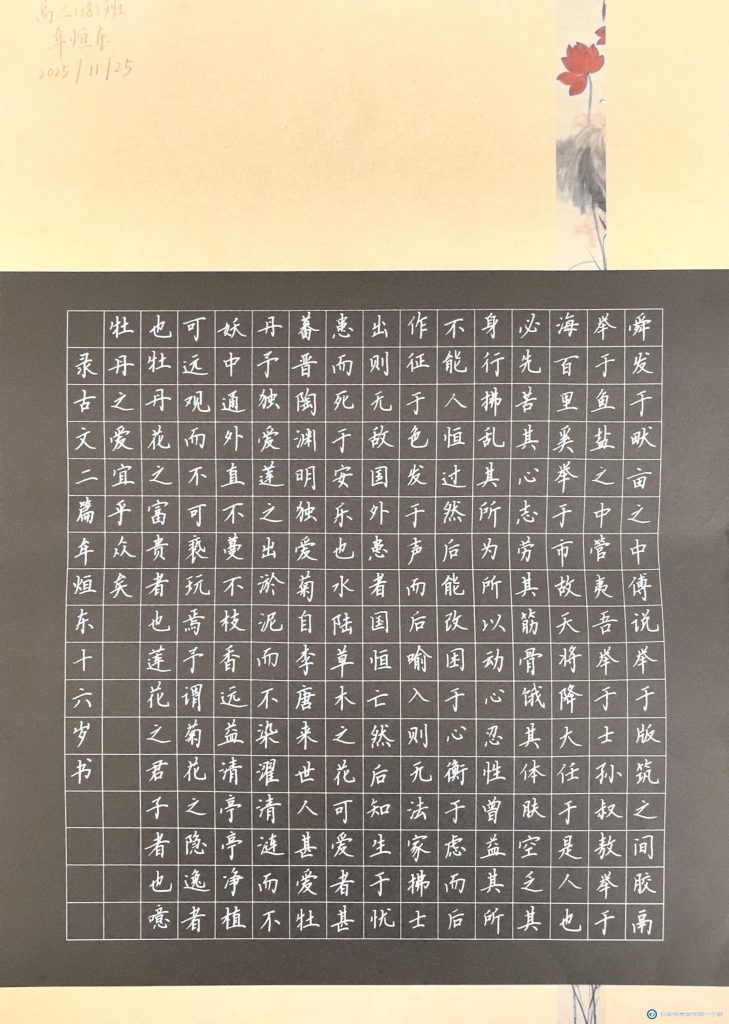 高二(18)班
年烜东
2025/11/25
舜发于畎亩之中傅说举于版筑之间胶鬲
举于鱼盐之中管夷吾举于士孙叔敖举于
海百里奚举于市故天将降大任于是人也
必先苦其心志劳其筋骨饿其体肤空乏其
身行拂乱其所为所以动心忍性曾益其所
不能人恒过然后能改困于心衡于虑而后
作征于色发于声而后喻入则无法家拂士
出则无敌国外患者国恒亡然后知生于忧
患而死于安乐也水陆草木之花可爱者甚
蕃晋陶渊明独爱菊自李唐来世人甚爱牡
丹予独爱莲之出淤泥而不染濯清涟而不
妖中通外直不蔓不枝香远益清亭亭净植
可远观而不可亵玩焉予谓菊花之隐逸者
也牡丹花之富贵者也莲花之君子者也噫
牡丹之爱宜乎众矣
录古文二篇年烜东十六岁书